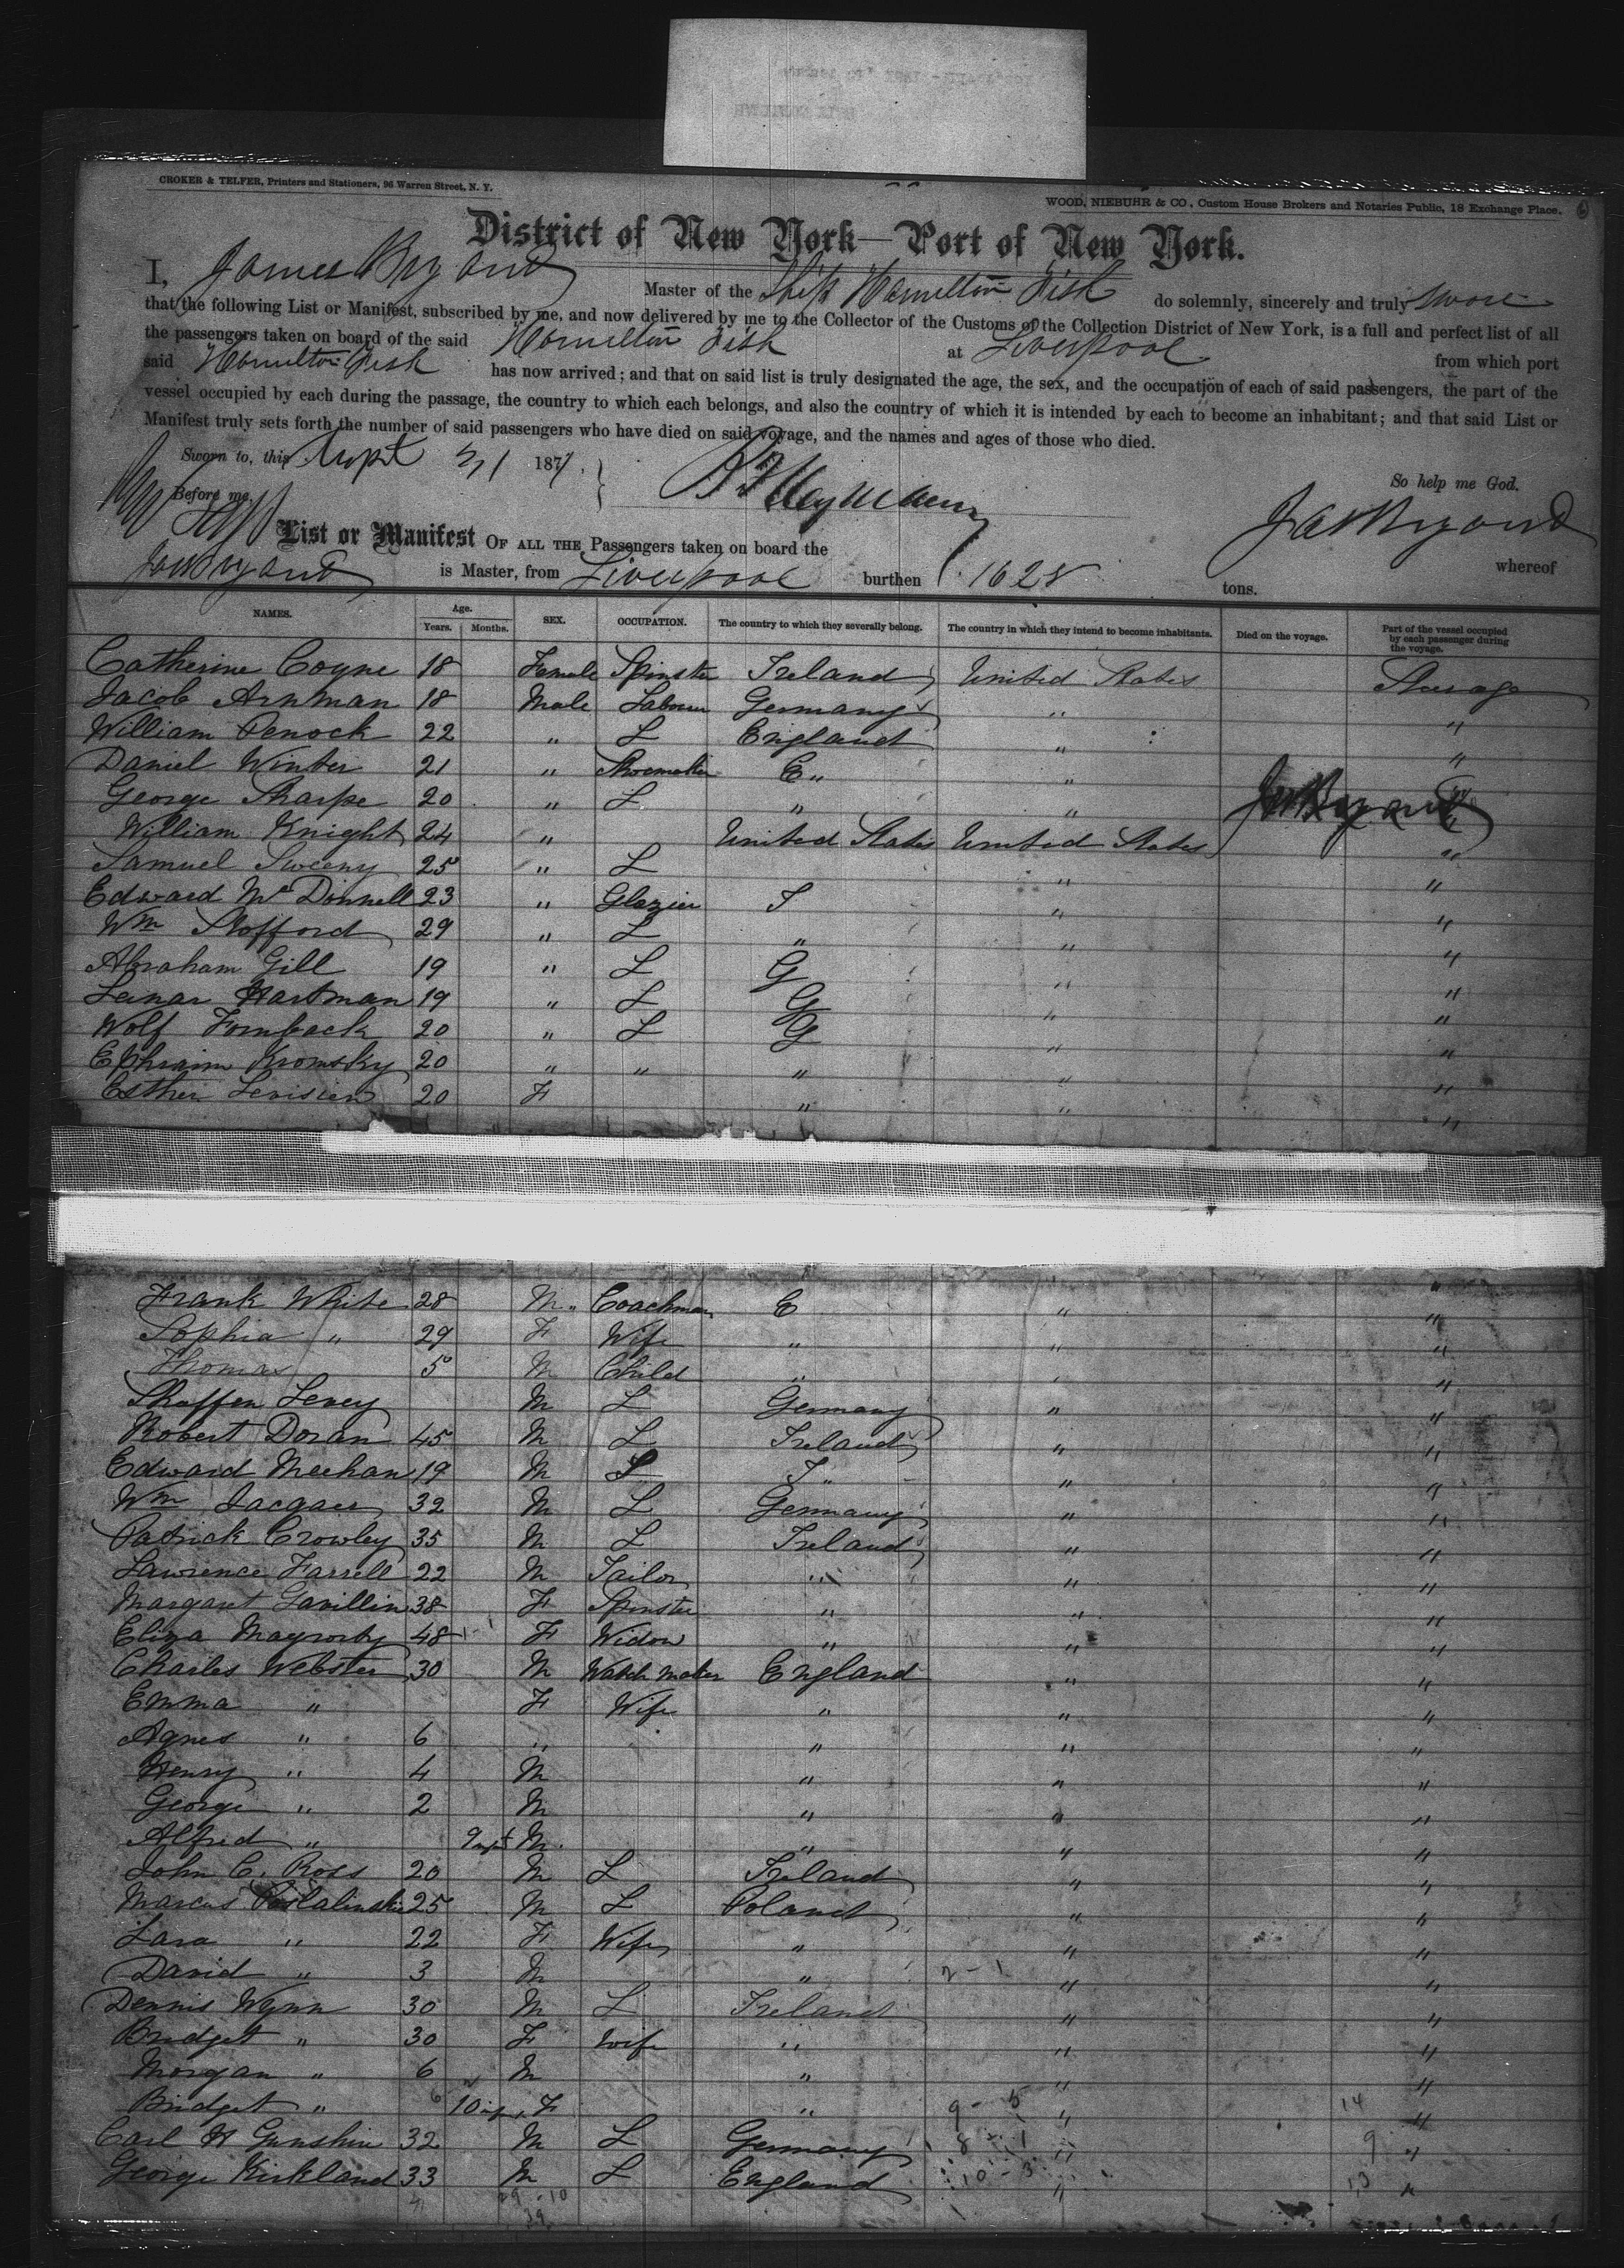 CROKER & TELFER, Printers and Stationers, 96 Warren Street, N. Y.
WOOD, NIEBUHR & CO., Custom House Brokers and Notaries Public, 18 Exchange Place.
District of New York—Port of New York.
I, James Bryand Master of the Ship Hamilton Fish do solemnly, sincerely and truly swore
that the following List or Manifest, subscribed by me, and now delivered by me to the Collector of the Customs of the Collection District of New York, is a full and perfect list of all
the passengers taken on board of the said Hamilton Fish at Liverpool from which port
said Hamilton Fish has now arrived; and that on said list is truly designated the age, the sex, and the occupation of each of said passengers, the part of the
vessel occupied by each during the passage, the country to which each belongs, and also the country of which it is intended by each to become an inhabitant; and that said List or
Manifest truly sets forth the number of said passengers who have died on said voyage, and the names and ages of those who died.
Sworn to, this Sept 187
So help me God.
Before me,
Jas Bryand
List or Manifest OF ALL THE Passengers taken on board the
whereof
Jas Bryand is Master, from Liverpool burthen 1628 tons.
NAMES. Age. Years. Months. SEX. OCCUPATION. The country to which they severally belong. The country in which they intend to become inhabitants. Died on the voyage. Part of the vessel occupied by each passenger during the voyage.
Catherine Coyne 18 Female Spinster Ireland United States Stearage
Jacob Arnman 18 Male Labourer Germany " "
William Penock 22 " L England " "
Daniel Winter 21 " Shoemaker E " " "
George Sharpe 20 " L " " "
Jas Bryand
William Knight 24 " United States United States "
Samuel Sweeny 25 " L " "
Edward McDonnell 23 " Glazier I " "
Wm Stofford 29 " L " " "
Abraham Gill 19 " L G " "
Leinar Hartman 19 " L G " "
Wolf Fornback 20 " L G " "
Ephraim Kromsky 20 " " " " "
Esther Levisien 20 F " " "
Frank White 28 M. Coachman E " "
Sophia " 29 F Wife " " "
Thomas 5 M Child " " "
Levey M L Germany " "
Robert Doran 45 M L Ireland " "
Edward Meehan 19 M L I " " "
Wm Jacqaer 32 M L Germany " "
Patrick Crowley 35 M L Ireland " "
Lawrence Farrell 22 M Tailor " " "
Margaret Gavillin 38 F Spinster " " "
Eliza 48 F Widow " " "
Charles Webster 30 M Watch maker England " "
Emma " F Wife " " "
Agnes " 6 " " " "
Henry " 4 M " " "
George " 2 M " " "
Alfred " 9 M. " " "
John C. Ross 20 M L Ireland " "
Marcus 25 M L Poland " "
Lara " 22 F Wife " " "
David " 3 M " 2-1 " "
Dennis Wynn 30 M L Ireland " "
Bridget " 30 F Wife " " "
Morgan " 6 M " " "
Bridget " 10 F " 9-5 " 14 "
Carl H Gunshin 32 M L Germany 8-1 " 9 "
George Kirkland 33 M L England 10-3 " 13 "
29-10
39